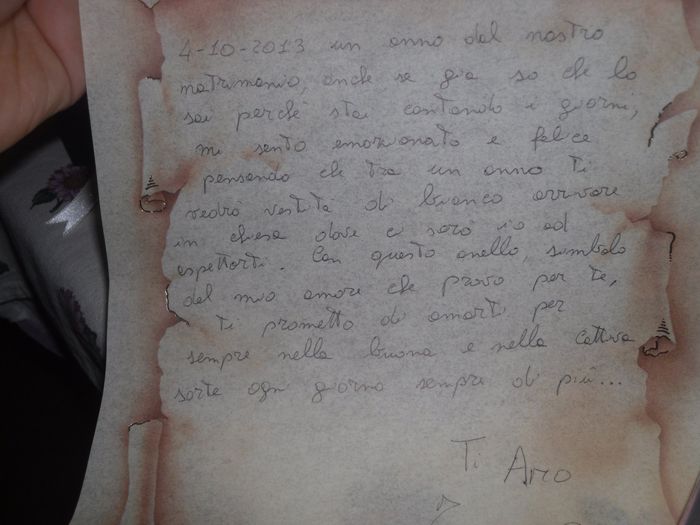 4-10-2013 un anno dal nostro
matrimonio, anche se già so che lo
sai perché stai contando i giorni,
mi sento emozionato e felice
pensando che tra un anno ti
vedrò vestita di bianco arrivare
in chiesa dove ci sarò io ad
aspettarti. Con questo anello, simbolo
del mio amore che provo per te,
ti prometto di amarti per
sempre nella buona e nella cattiva
sorte ogni giorno sempre di più...
Ti Amo